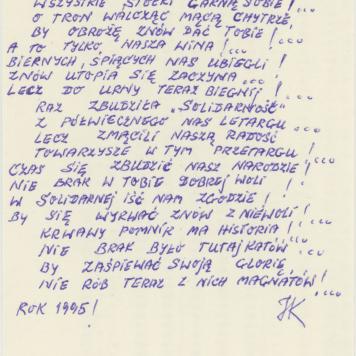 WSZYSTKIE STOŁKI GARNĄ SOBIE! ...
O TRON WALCZĄC MĄCĄ CHYTRZE,
BY OBROŻĘ ZNÓW DAĆ TOBIE! ...
A TO TYLKO NASZA WINA! ...
BIERNYCH, ŚPIĄCYCH NAS UBIEGLI!
ZNÓW UTOPIA SIĘ ZACZYNA ...
LECZ DO URNY TERAZ BIEGNIJ! ...
RAZ ZBUDZIŁA „SOLIDARNOŚĆ"
Z PÓŁWIECZNEGO NAS LETARGU ...
LECZ ZMĄCILI NASZĄ RADOŚĆ
TOWARZYSZE W TYM PRZETARGU! ...
CZAS SIĘ ZBUDZIĆ NASZ NARODZIE!
NIE BRAK W TOBIE DOBREJ WOLI !
W SOLIDARNEJ IŚĆ NAM ZGODZIE!
BY SIĘ WYRWAĆ ZNÓW Z NIEWOLI! ...
KRWAWY POMNIK MA HISTORIA! ...
NIE BRAK BYŁO TUTAJ KATÓW ...
BY ZAŚPIEWAĆ SWOJĄ GLORIĘ,
NIE RÓB TERAZ Z NICH MAGNATÓW! ...
ROK 1995! JK